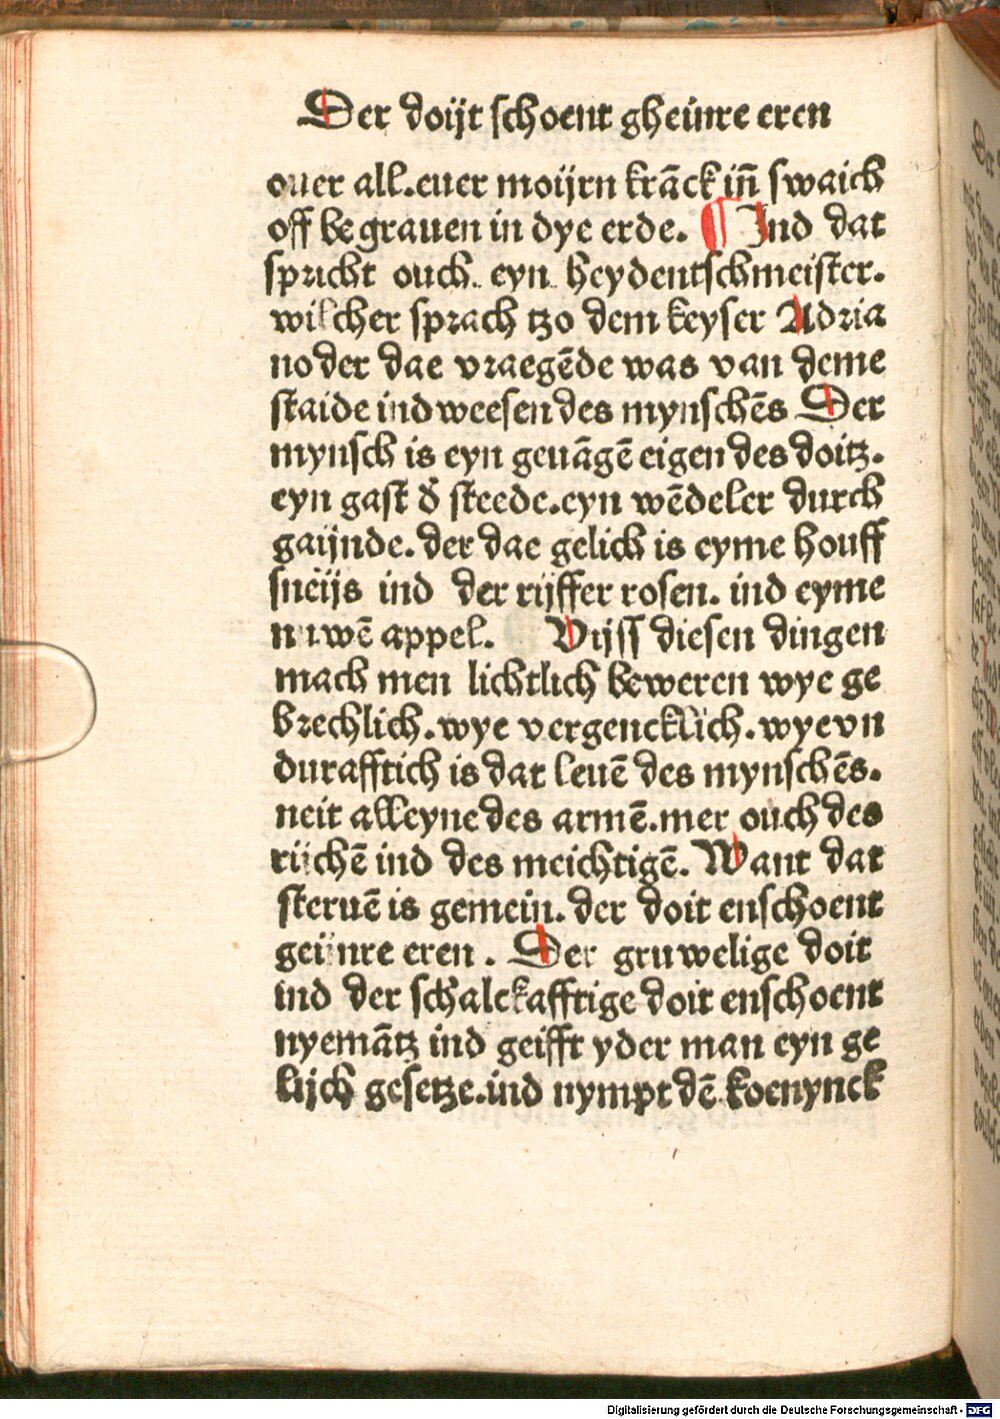 Der doijt schoent gheünre eren
ouer all.euer moijrn krāck iñ swaich
off begrauen in dye erde. ¶ Ind dat
spricht ouch eyn heydentschmeister.
wilcher sprach tzo dem keyser Adria
no der dae vraegēde was van deme
staide ind weesen des mynschēs Der
mynsch is eyn geuāgē eigen des doitz.
eyn gast d̄ steede.eyn wēdeler durch
gaijnde. der dae gelich is eyme houff
sneijs ind der rijffer rosen. ind eyme
nuwē appel. Vijss diesen dingen
mach men lichtlich beweren wye ge
brechlich.wye vergencklich.wye vn
durafftich is dat leuē des mynschēs.
neit alleyne des armē.mer ouch des
rijchē ind des meichtigē. Want dat
steruē is gemein. der doit enschoent
geünre eren . Der gruwelige doit
ind der schalckafftige doit enschoent
nyemātz ind geifft yder man eyn ge
lijch gesetze.ind nympt dē koenynck
Digitalisierung gefördert durch die Deutsche Forschungsgemeinschaft - DFG